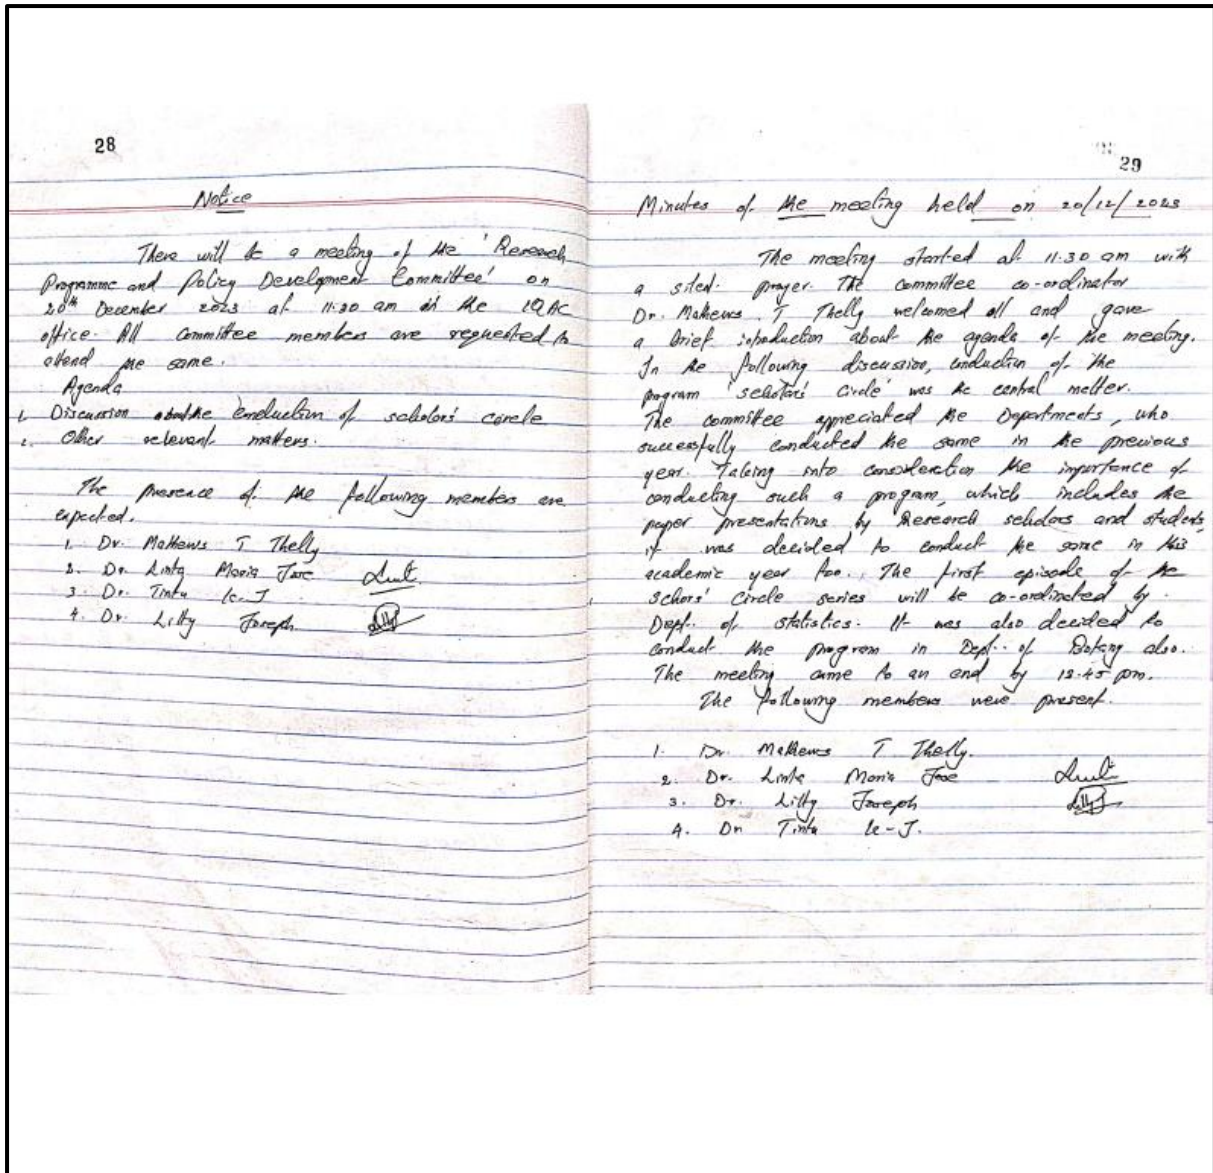 28
Notice
There will be a meeting of the 'Research
Programme and Policy Development Committee' on
20th December 2023 at 11.30 am in the IQAC
office. All committee members are requested to
attend the same.
Agenda
1. Discussion about the conduction of scholar's circle
2. Other relevant matters.
The presence of the following members are
expected.
1. Dr. Mathews T Thelly
2. Dr. Linta Maria Jose
3. Dr. Tintu K.J
4. Dr. Litty Joseph
29
Minutes of the meeting held on 20/12/2023
The meeting started at 11.30 am with
a silent prayer. The committee co-ordinator
Dr. Mathews T Thelly welcomed all and gave
a brief introduction about the agenda of the meeting.
In the following discussion, conduction of the
program 'scholar's Circle' was the central matter.
The committee appreciated the Departments, who
successfully conducted the same in the previous
year. Taking into consideration the importance of
conducting such a program, which includes the
paper presentations by Research scholars and students,
it was decided to conduct the same in this
academic year too. The first episode of the
Schors' Circle series will be co-ordinated by
Dept. of statistics. It was also decided to
conduct the program in Dept. of Botany also.
The meeting came to an end by 12.45 pm.
The following members were present.
1. Dr. Mathews T Thelly.
2. Dr. Linta Maria Jose
3. Dr. Litty Joseph
4. Dr Tintu K-J.